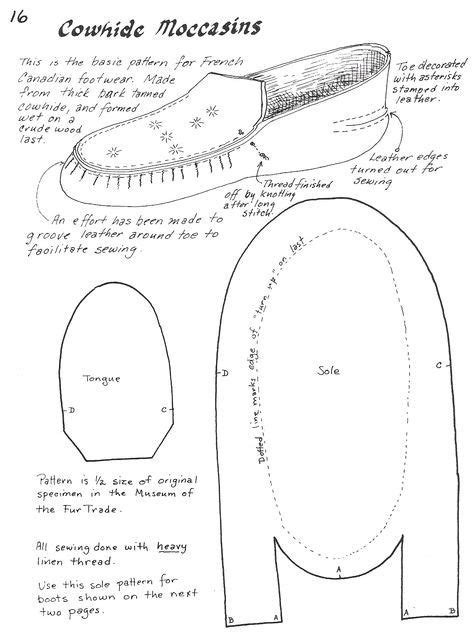 16
Cowhide Moccasins
This is the basic pattern for French
Canadian footwear. Made
from thick bark tanned
cowhide, and formed
wet on a
crude wood
last.
Toe decorated
with asterisks
stamped into
leather.
Leather edges
turned out for
sewing
Thread finished
off by knotting
after long
stitch.
An effort has been made to
groove leather around toe to
facilitate sewing.
Tongue
D
C
Dotted line marks edge of "turn up" on last
Sole
D
C
A
B
A
A
B
Pattern is 1/2 size of original
specimen in the Museum of
the Fur Trade.
All sewing done with heavy
linen thread.
Use this sole pattern for
boots shown on the next
two pages.